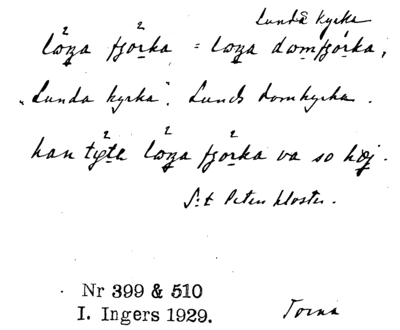 Lunda kyrka
lŏŋa fjórka = lŏŋa domfjórka,
"Lunda kyrka". Lunds domkyrka.
han tyta lŏŋa fjórka va so høj.
S:t Peters kloster.
Nr 399 & 510
I. Ingers 1929.
Torna